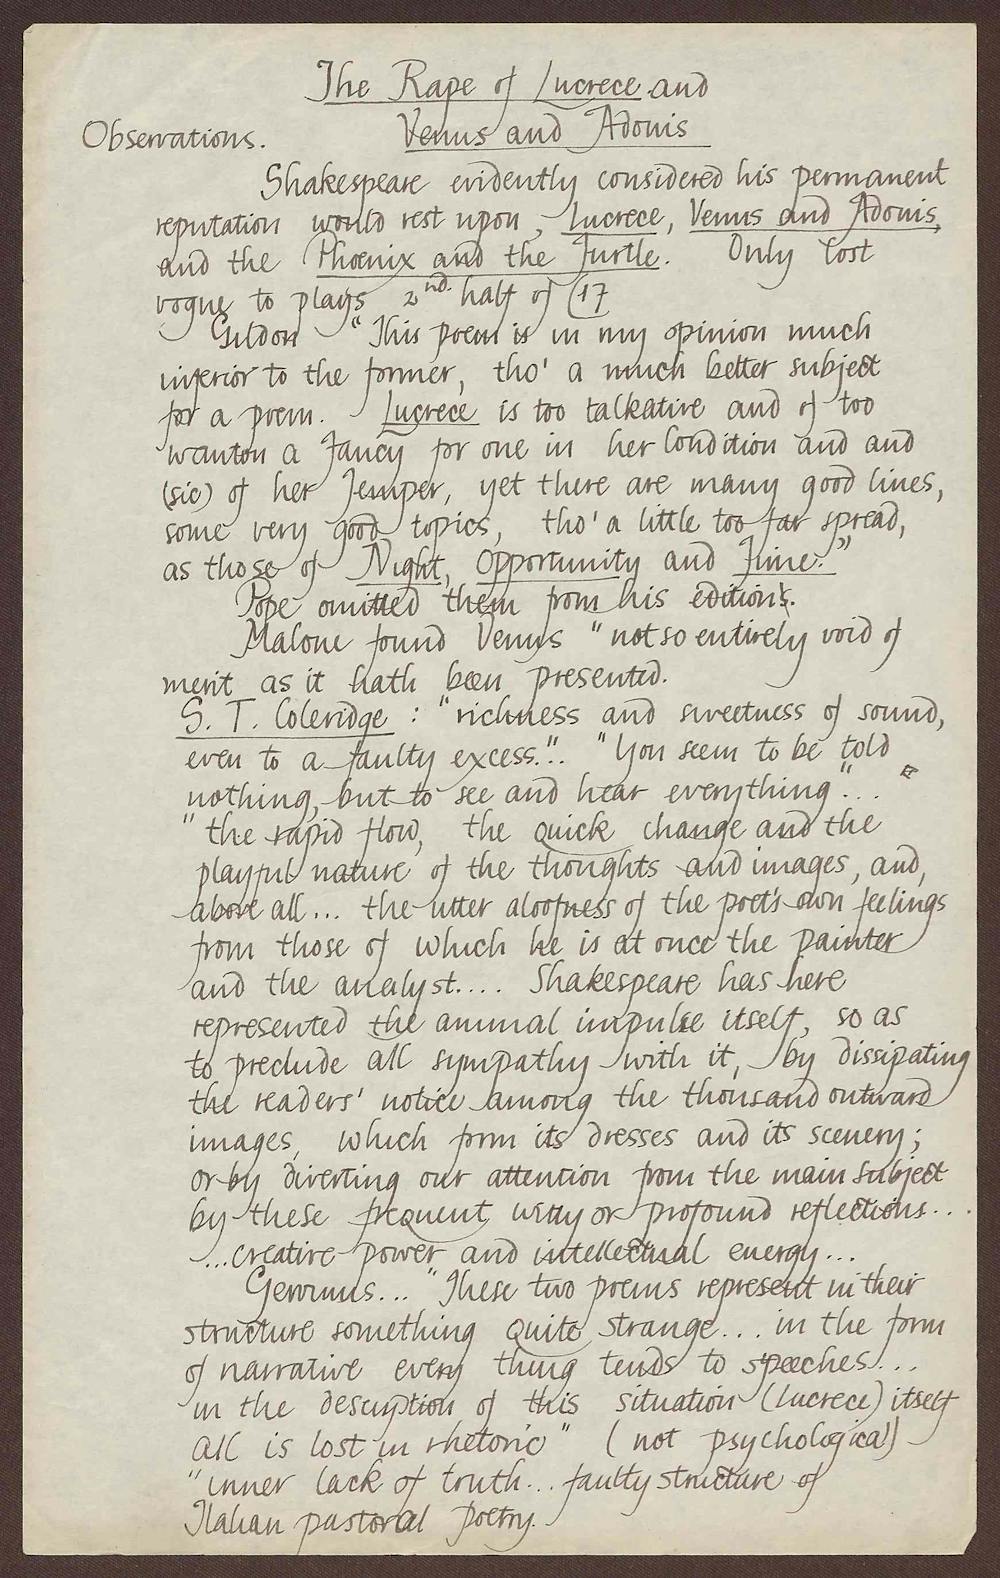 The Rape of Lucrece and
Venus and Adonis
Observations.
Shakespeare evidently considered his permanent
reputation would rest upon, Lucrece, Venus and Adonis,
and the Phœnix and the Turtle. Only lost
vogue to plays 2nd. half of C17
Gildon "This poem is in my opinion much
inferior to the former, tho' a much better subject
for a poem. Lucrece is too talkative and of too
wanton a Fancy for one in her Condition and and
(sic) of her Temper, yet there are many good lines,
some very good topics, tho' a little too far spread,
as those of Night, Opportunity and Time."
Pope omitted them from his editions.
Malone found Venus "not so entirely void of
merit as it hath been presented.
S. T. Coleridge : "richness and sweetness of sound,
even to a faulty excess.".. "You seem to be told
nothing, but to see and hear everything"...
"the rapid flow, the quick change and the
playful nature of the thoughts and images, and,
above all... the utter aloofness of the poet's own feelings
from those of which he is at once the painter
and the analyst.... Shakespeare has here
represented the animal impulse itself, so as
to preclude all sympathy with it, by dissipating
the readers' notice among the thousand outward
images, which form its dresses and its scenery;
or by diverting our attention from the main subject
by these frequent witty or profound reflections...
...creative power and intellectual energy...
Gervinus... "These two poems represent in their
structure something quite strange... in the form
of narrative every thing tends to speeches...
in the description of this situation (Lucrece) itself
all is lost in rhetoric" (not psychological)
"inner lack of truth... faulty structure of
Italian pastoral Poetry.